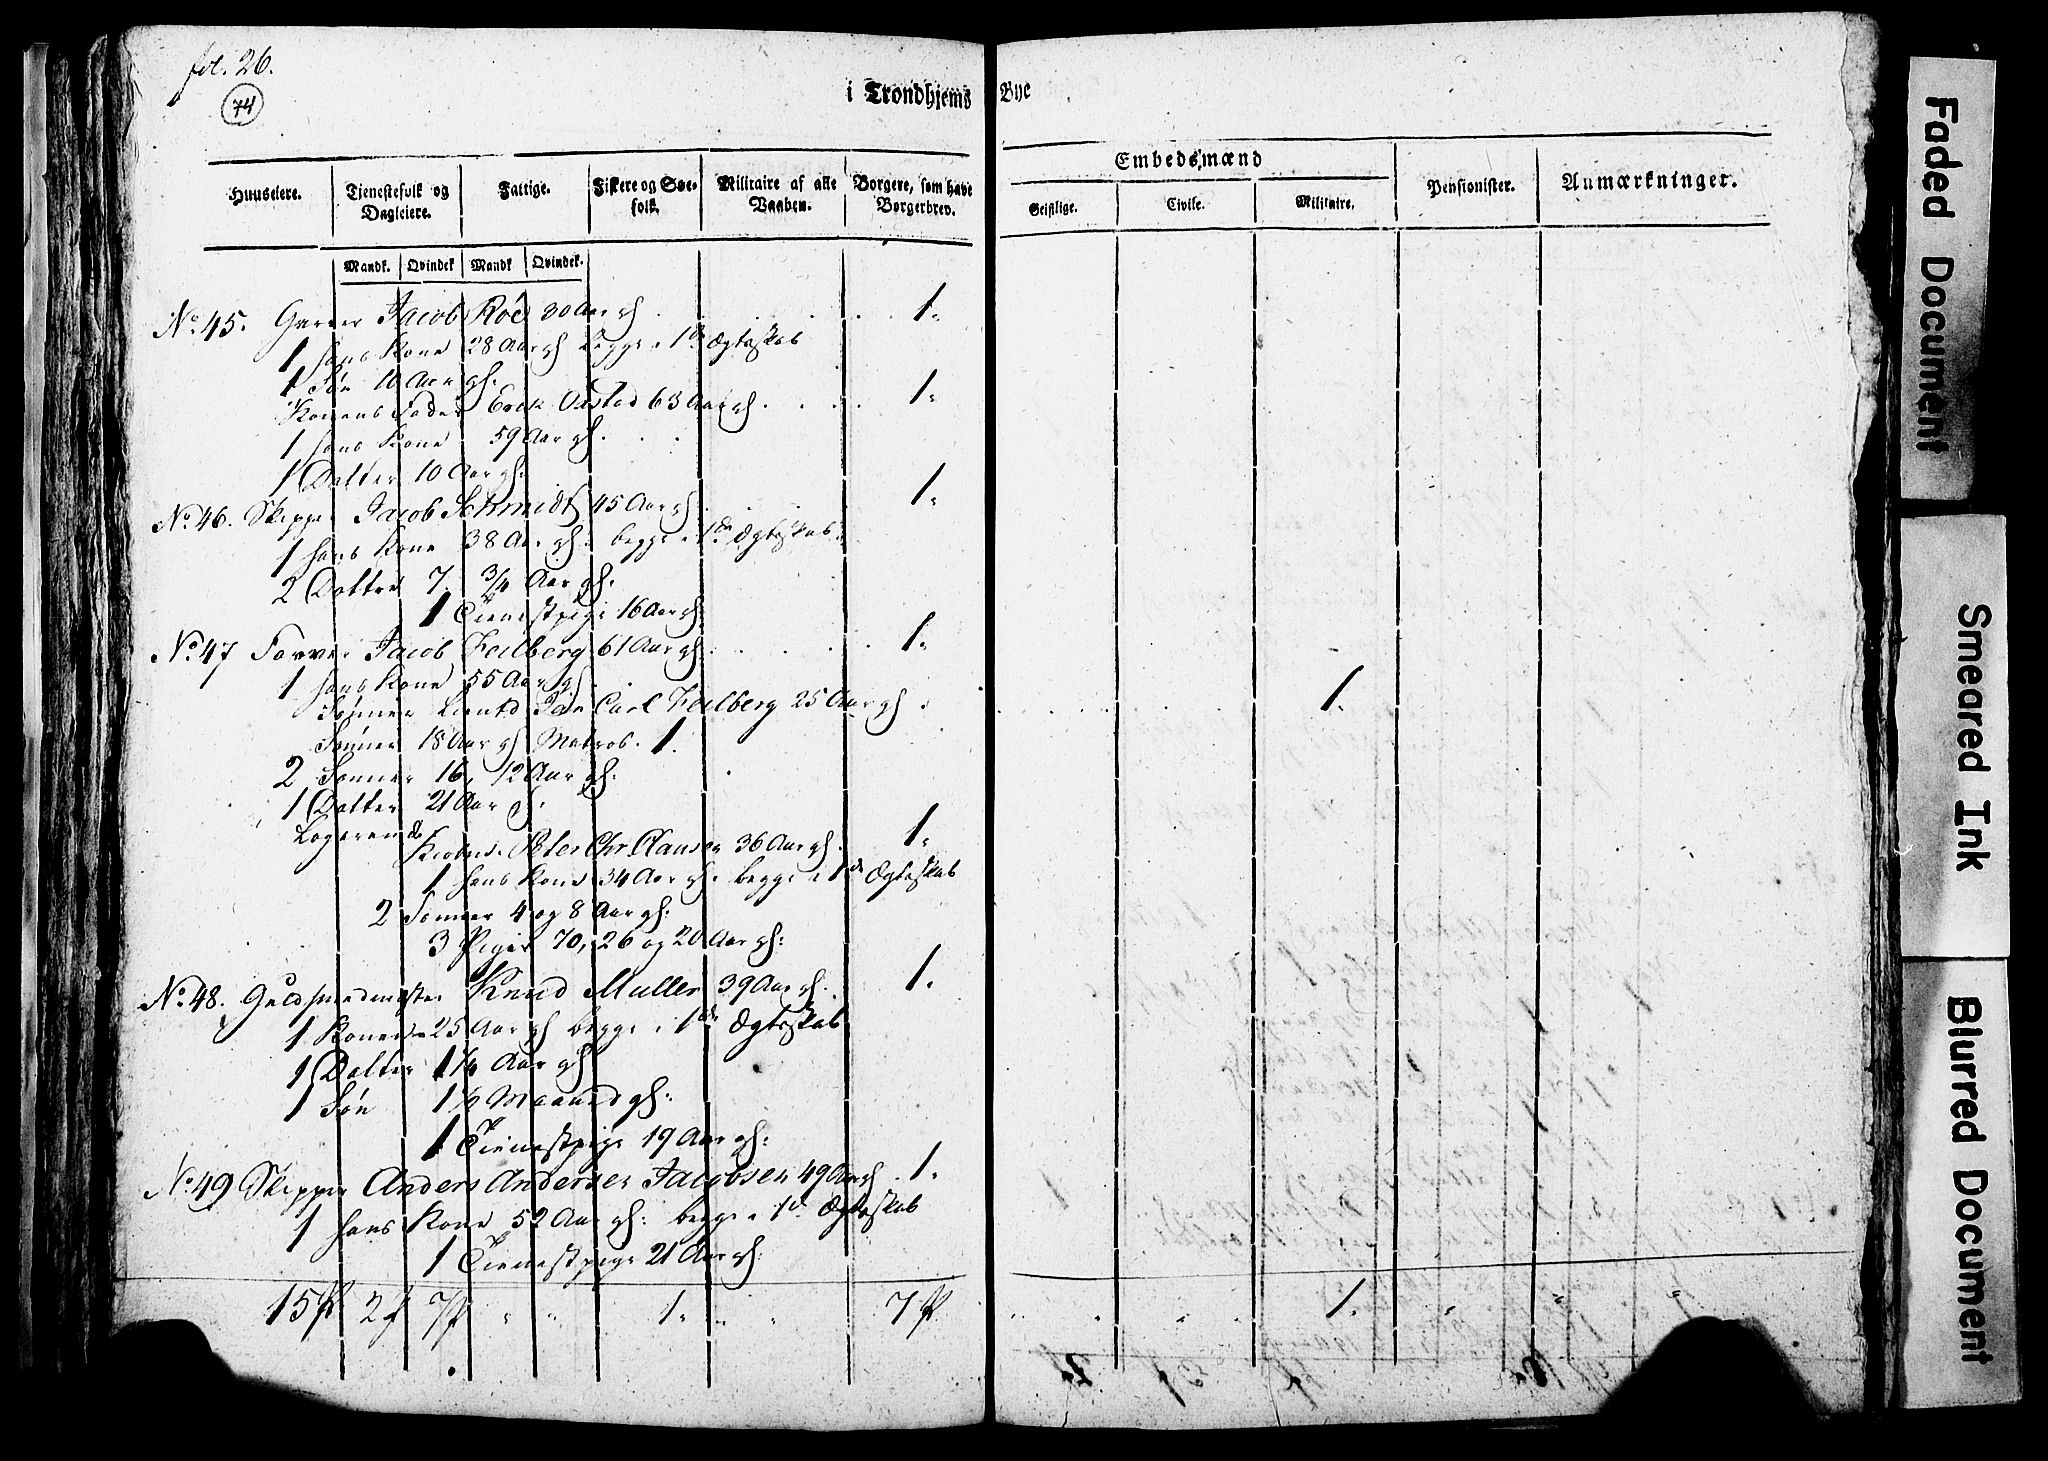 fol. 26.
74
i Trondhjems Bye
Huuseiere.
Tjenestefolk og Dagleiere.
Fattige.
Fiskere og Søefolk.
Militaire af alle Vaaben.
Borgere, som have Borgerbrev.
Embedsmænd
Geistlige.
Civile.
Militaire.
Pensionister.
Anmærkninger.
Mandk. Qvindek Mandk Qvindek.
No. 45. Garver Jacob Roe 30 Aar gl. 1.
1 hans Kone 28 Aar gl begge i 1ste Ægteskab
1 Søn 10 Aar gl.
Konens Fader Erek Oxstad 63 Aar gl. 1.
1 hans Kone 59 Aar gl.
1 Datter 10 Aar gl:
No. 46. Skipper Jacob Schmidt 45 Aar gl. 1.
1 hans Kone 38 Aar gl: begge i 1de Ægteskab.
2 Dottre 7. 3/4 Aar gl.
1 Tienestpige 16 Aar gl
No. 47 Farver Jacob Feilberg 61 Aar gl. 1.
1 hans Kone 55 Aar gl.
Sønner Lieutd Carl Feilberg 25 Aar gl. 1.
Sønner 18 Aar gl Matros. 1.
2 Sønner 16, 12 Aar gl.
1 Datter 21 Aar gl.
Logerende
Peter Chr. Clausen 36 Aar gl. 1.
1 hans Kone 34 Aar gl. begge i 1de Ægteskab
2 Sønner 4 og 8 Aar gl:
3 Piger 70, 26 og 20 Aar gl:
No. 48. Guldsmedmester Knud Muller 39 Aar gl. 1.
1 Kone 25 Aar gl begge i 1ste Ægteskab
1 Datter 1 1/4 Aar gl
1 Søn 1 1/2 Maaned gl:
1 Tienestpige 19 Aar gl:
No. 49 Skipper Anders Andersen Jacobsen 49 Aar gl. 1.
1 hans Kone 52 Aar gl: begge i 1d. Ægteskab
1 Tienestpige 21 Aar gl.
15 2 7 1. 7 1.
Faded Document
Smeared Ink
Blurred Document